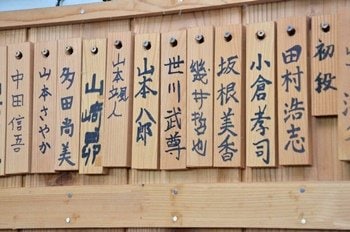 初段
田村浩志
小倉孝司
坂根美香
幾井哲也
世川武尊
山本八郎
山崎昴
多田尚美
山本さやか
中田信吾